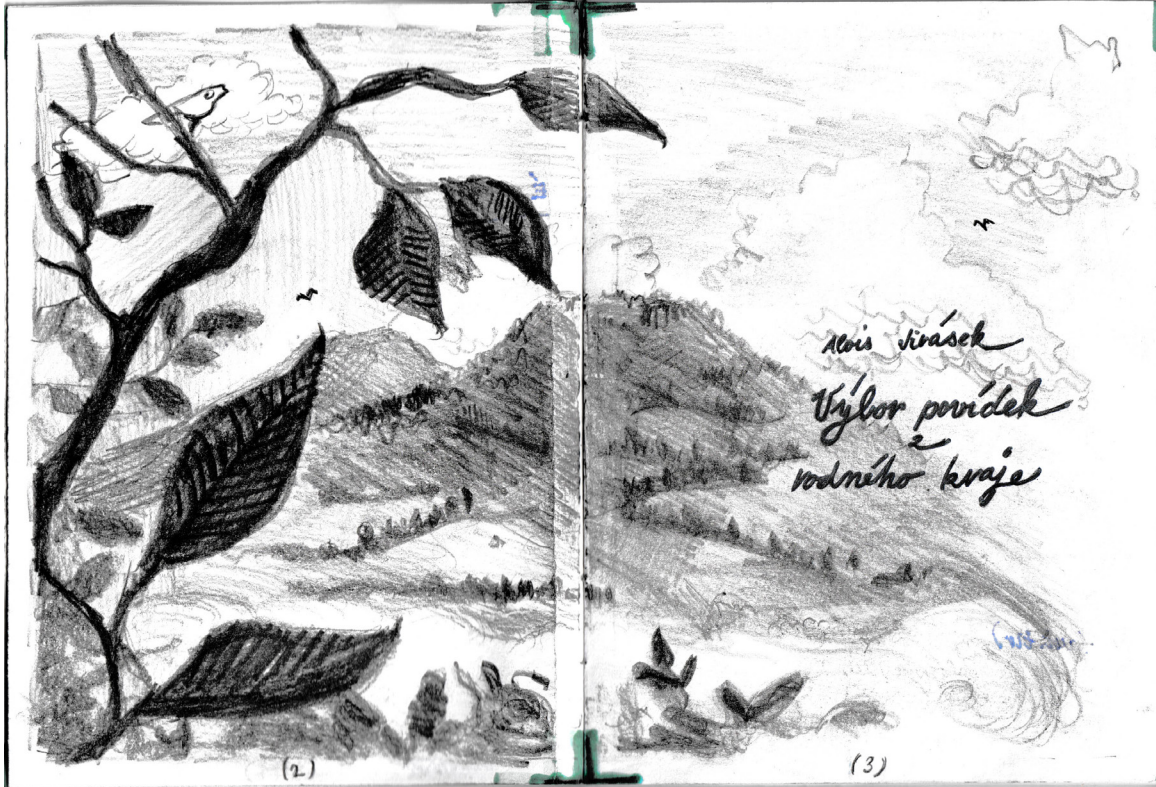 Alois Jirásek
Výbor povídek
z
rodného kraje
(2)
(3)